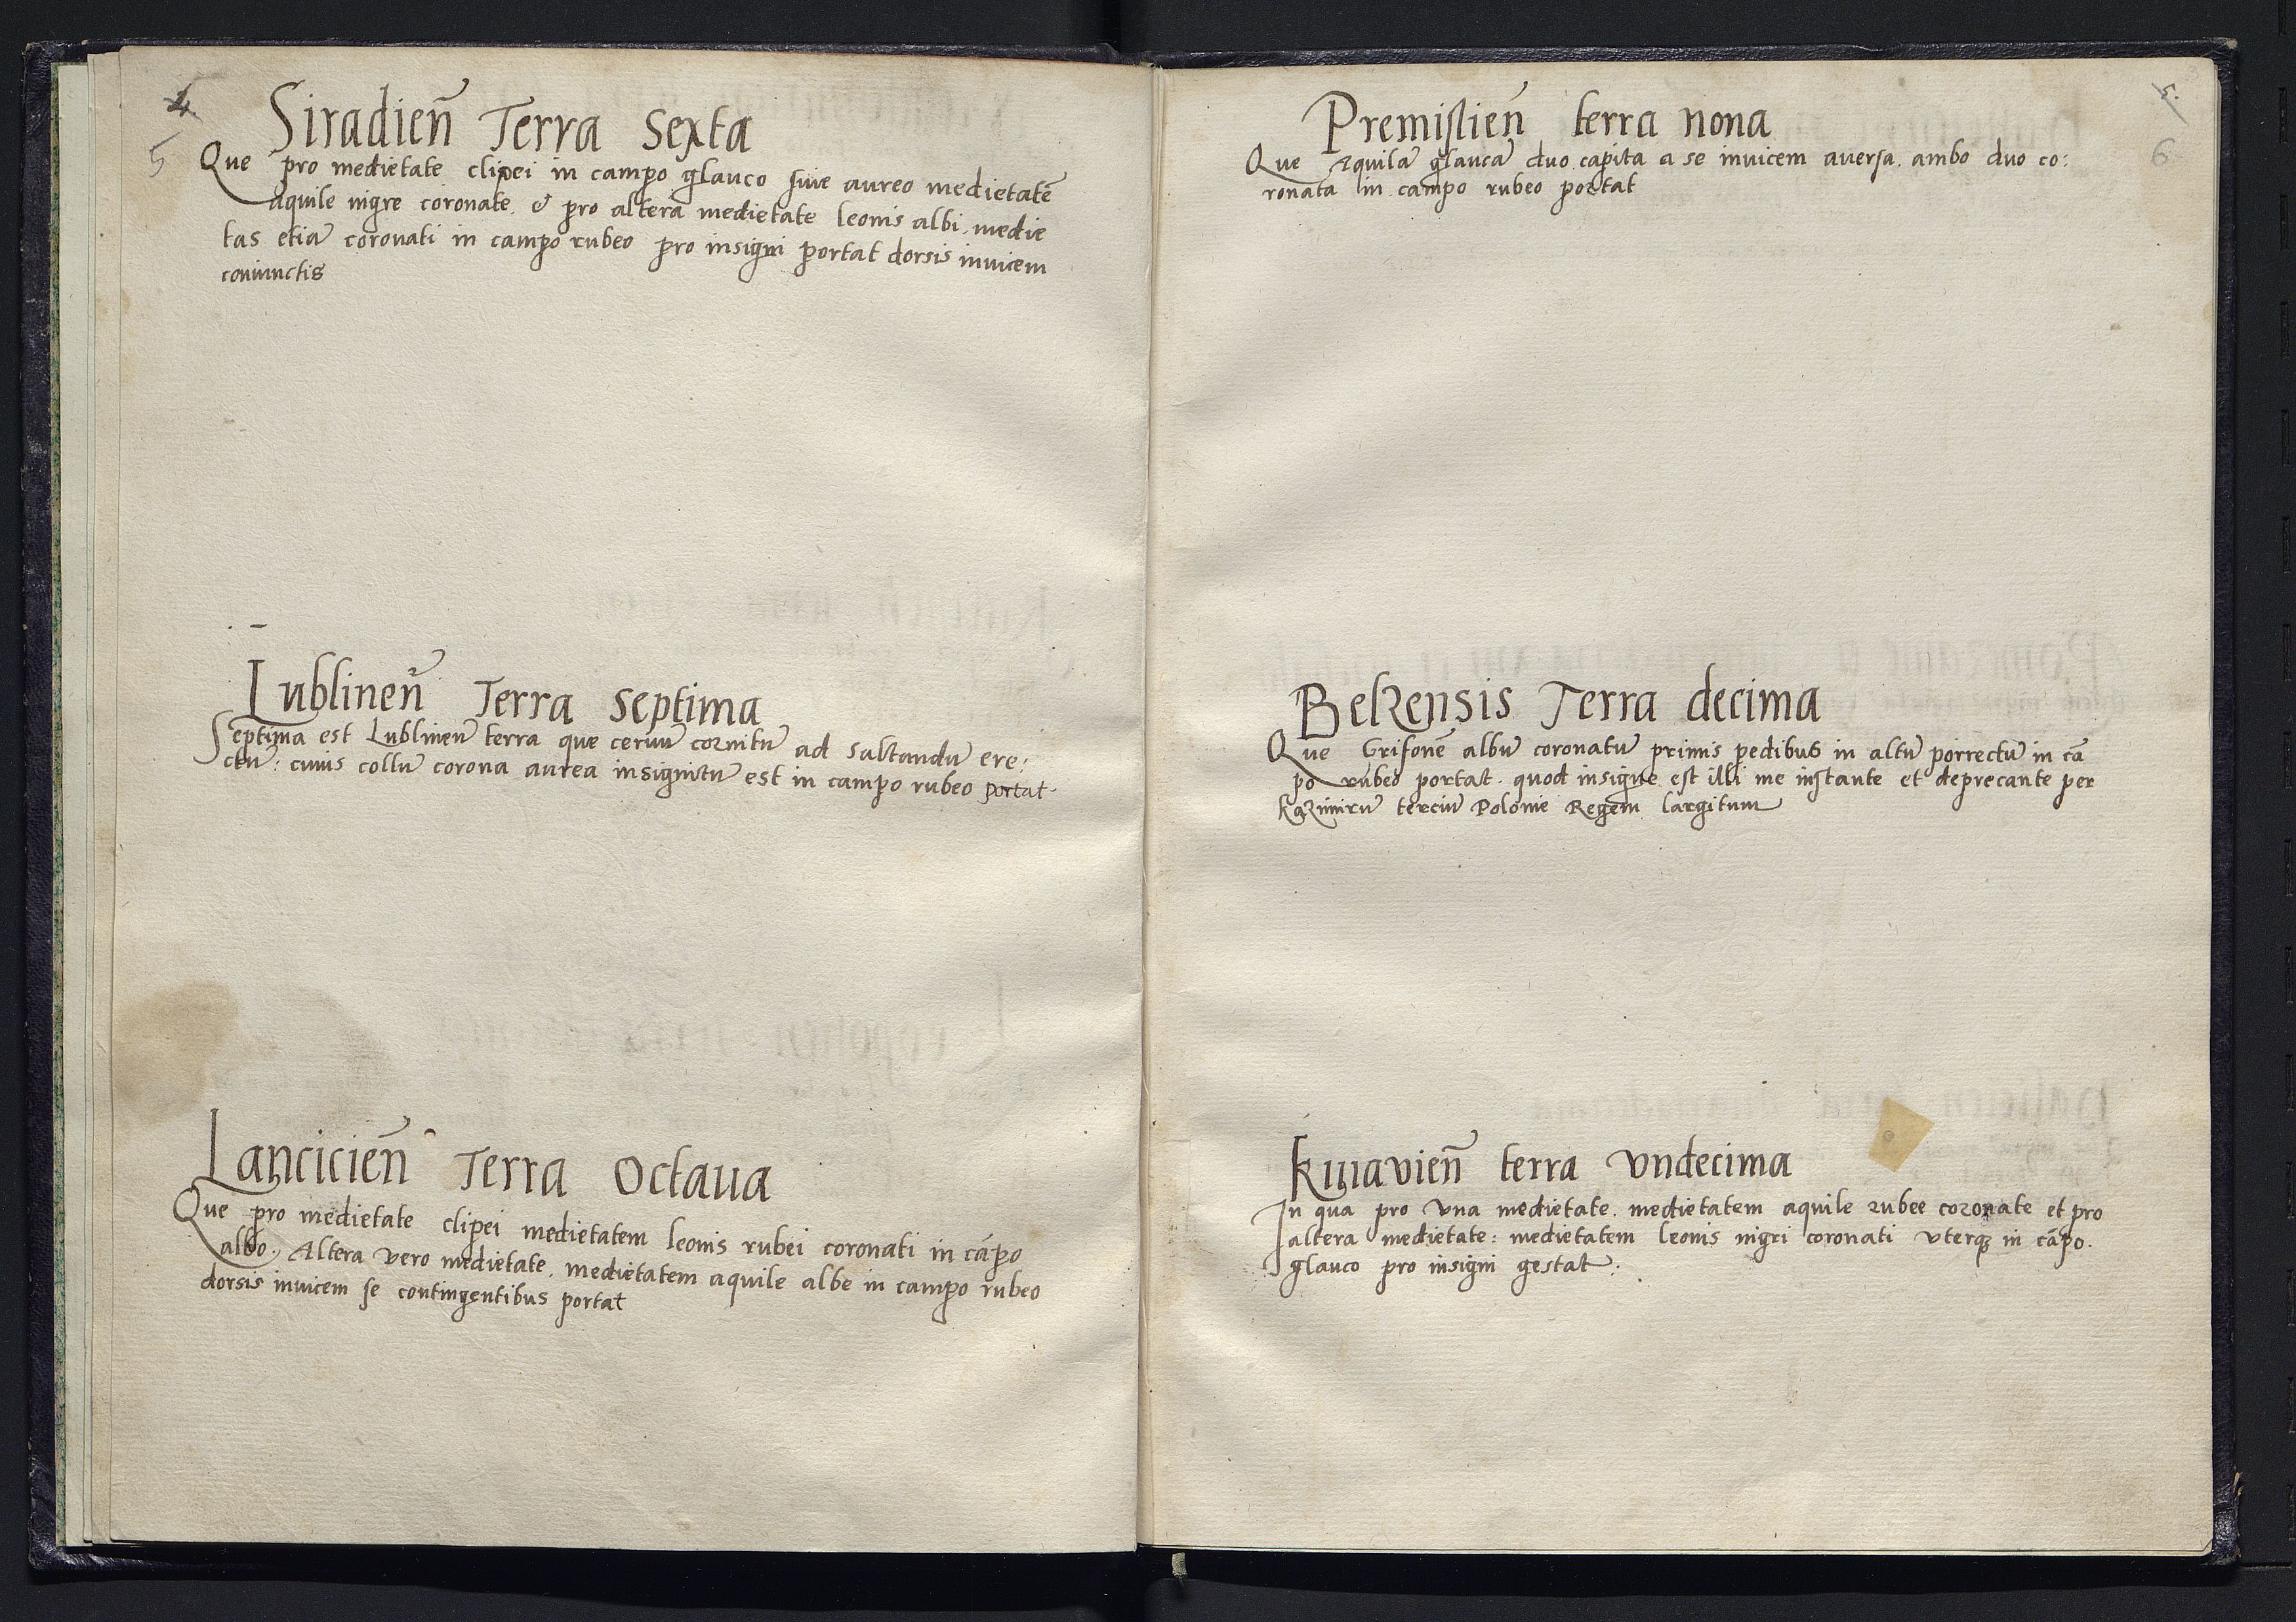 4
5
Siradien̄ Terra Sexta
Que pro medietate clipei in campo glauco siue aureo medietatē
aquile nigre coronate. & pro altera medietate leonis albi. medie
tas etiā coronati in campo rubeo pro insigni portat dorsis inuicem
coniunctis
Lublinen̄ Terra Septima
Septima est Lublinen̄ terra que ceruū cornitū ad saltandū ere:
ctū: cuius collū corona aurea insignitū est in campo rubeo portat.
Lancicien̄ Terra Octaua
Que pro medietate clipei medietatem leonis rubei coronati in cāpo
albo. Altera vero medietate. medietatem aquile albe in campo rubeo
dorsis inuicem se contingentibus portat
5.
6
Premislien̄ terra nona
Que Aquilā glaucā duo capita a se inuicem auersa. ambo duo co:
ronata in campo rubeo portat
Belzensis Terra decima
Que Grifonē albū coronatū primis pedibus in altū porrectū in cā
po rubeo portat. quod insigne est illi me instante et deprecante per
kazimirū terciū Polonie Regem largitum
Kuiavien̄ terra vndecima
In qua pro vna medietate. medietatem aquile rubee coronate et pro
altera medietate: medietatem leonis nigri coronati vterqꝫ in cāpo.
glauco pro insigni gestat: